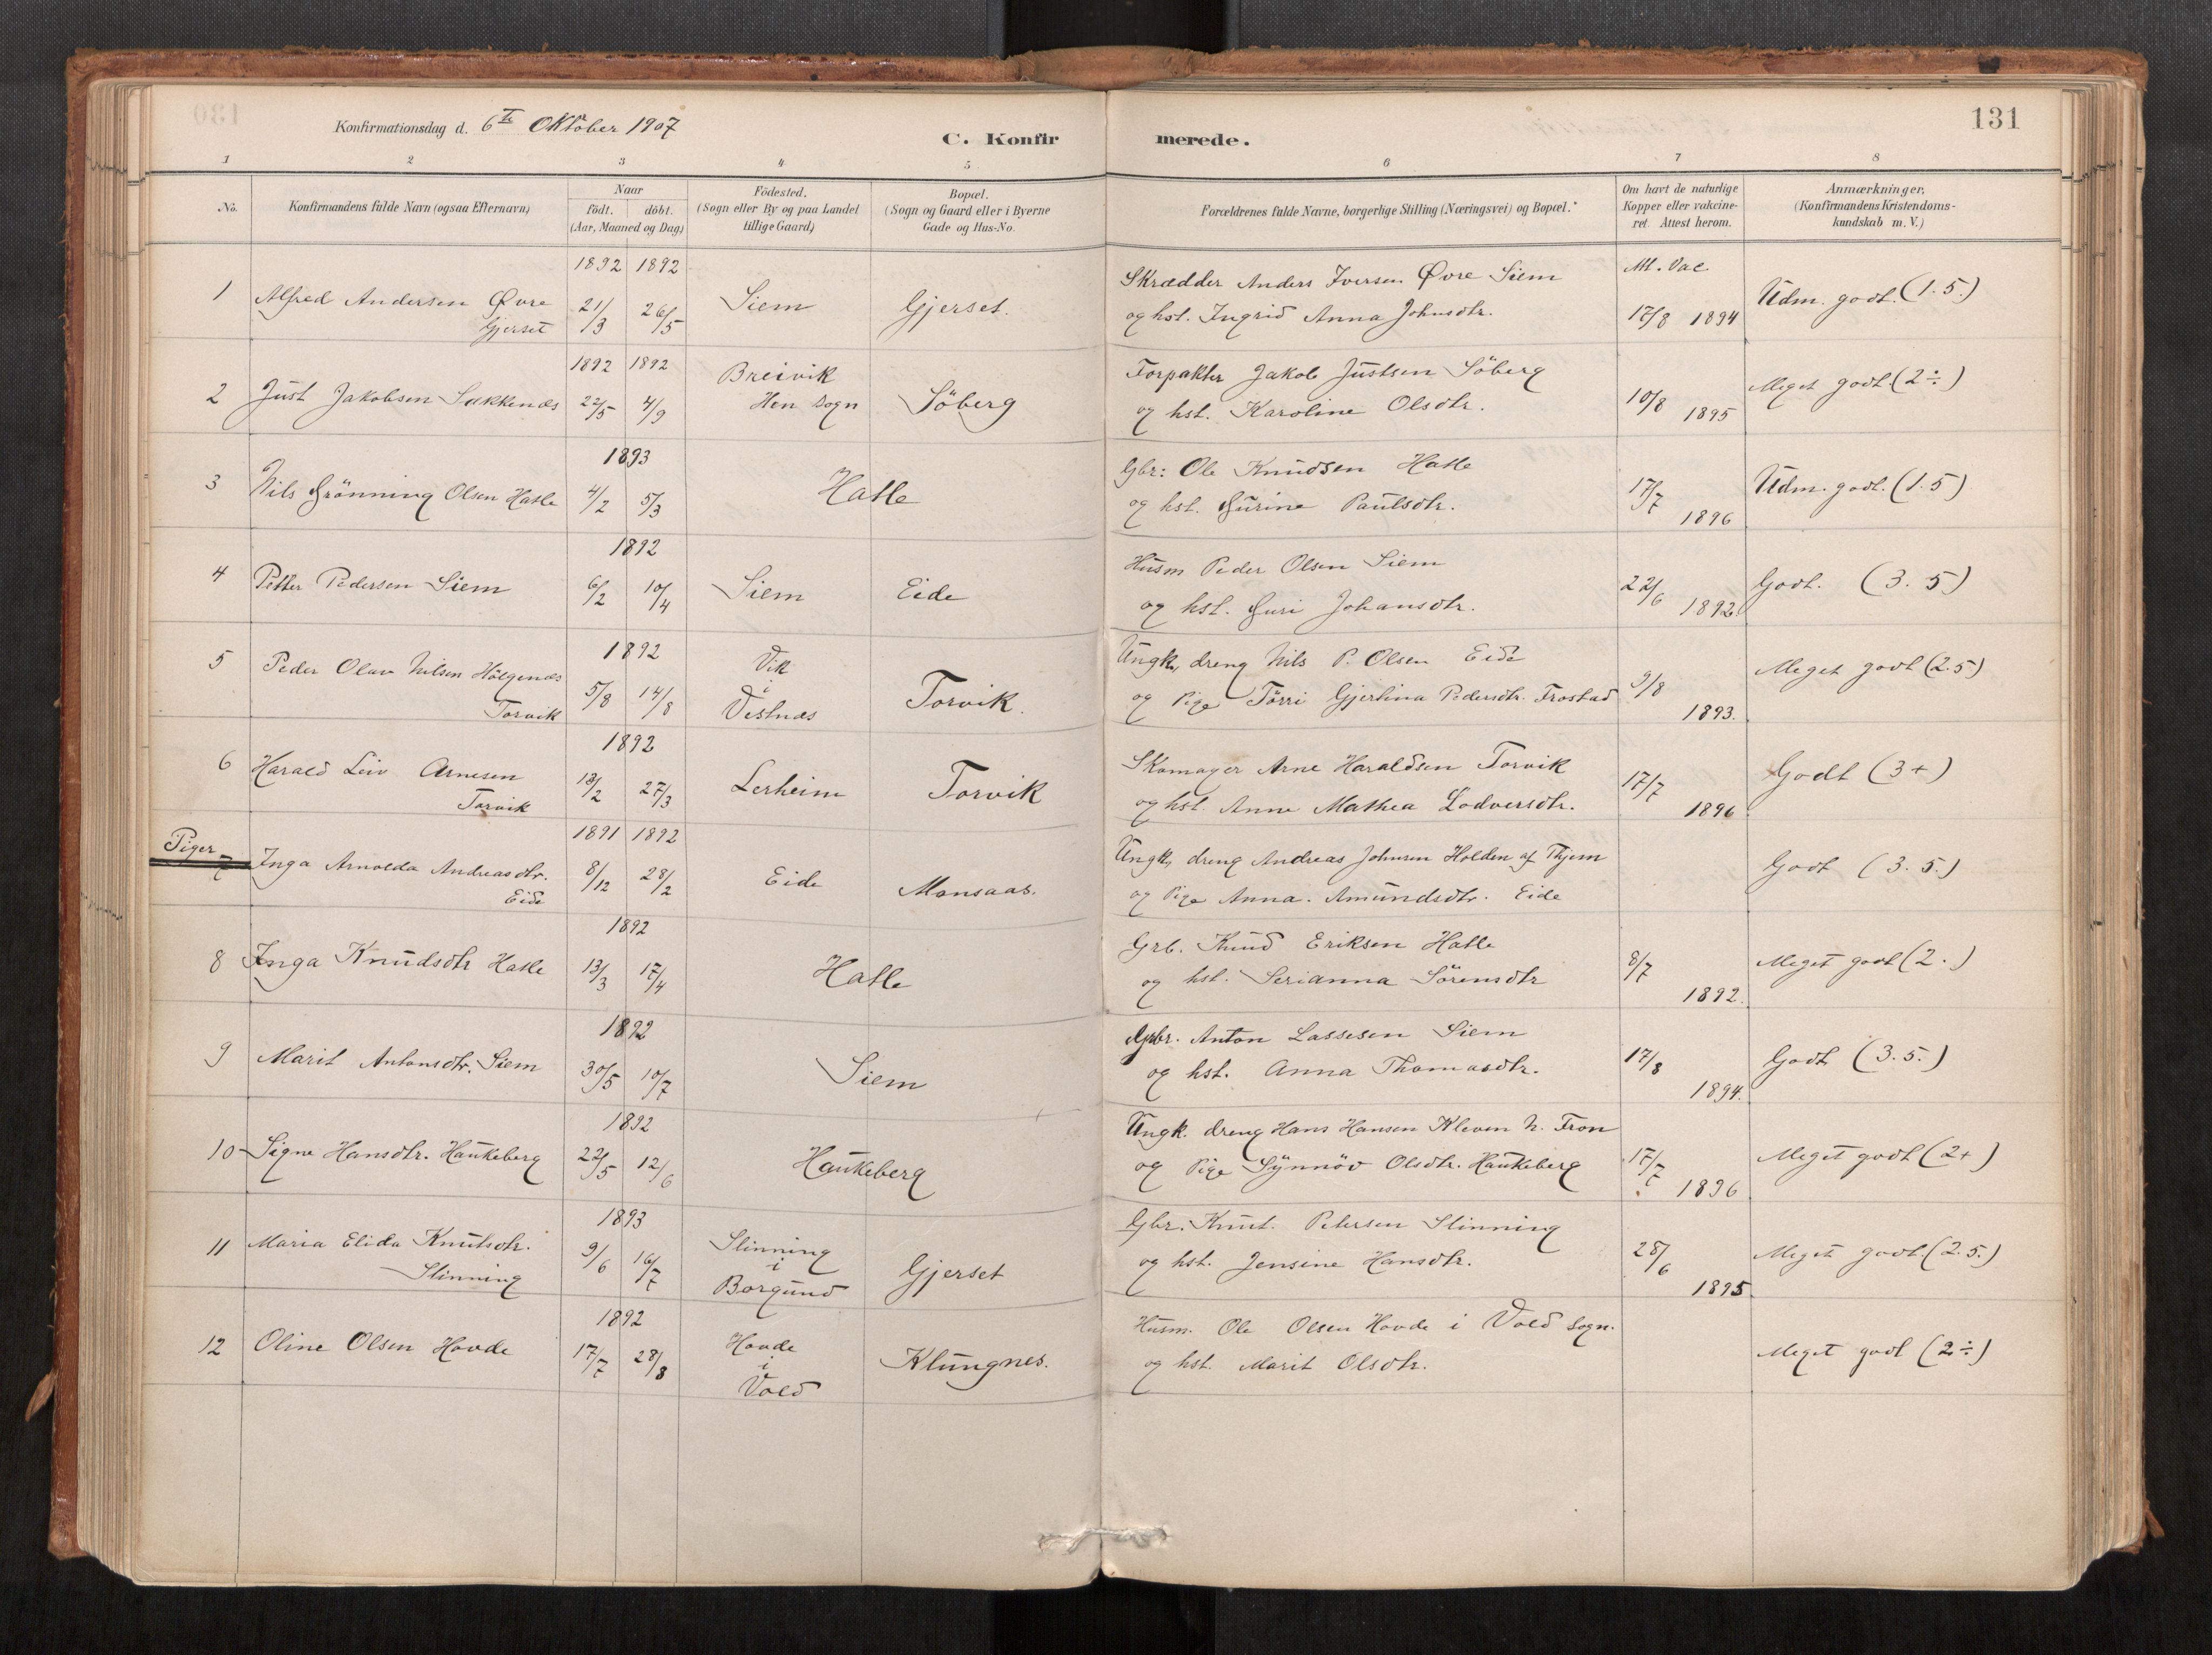 131
Konfirmationsdag d. 6te Oktober 1907
C. Konfirmerede.
1 2 3 4 5 6 7 8
No.
Konfirmandens fulde Navn (ogsaa Efternavn)
Naar
födt. döbt.
(Aar, Maaned og Dag)
Födested.
(Sogn eller By og paa Landet
tillige Gaard)
Bopæl.
(Sogn og Gaard eller i Byerne
Gade og Hus-No.
Forældrenes fulde Navne, borgerlige Stilling (Næringsvei) og Bopæl.*
Om havt de naturlige
Kopper eller vakcine-
ret. Attest herom.
Anmærkninger.
(Konfirmandens Kristendoms-
kundskab m. V.)
1892 1892
1 Alfred Andersen Øvre
Gjerset
21/3 26/5 Siem Gjerset.
Skrædder Anders Iversen Øvre Siem
og hst. Ingrid Anna Johnsdtr.
Att. Vac.
17/8 1894
Udm. godt. (1.5.)
1892 1892
2 Just Jakobsen Sakkenæs
22/5 4/9
Breivik
Hen Sogn
Söberg
Forpakter Jakob Justsen Söberg
og hst. Karoline Olsdtr.
10/8 1895
Meget godt (2÷)
1893
3 Nils Grönning Olsen Hatle
4/2 5/3 Hatle
Gbr: Ole Knudsen Hatle
og hst. Gurine Paulsdtr.
17/7 1896
Udm. godt. (1.5)
1892
4 Petter Pedersen Siem
6/2 10/4 Siem Eide
Husm Peder Olsen Siem
og hst. Guri Johansdtr.
22/6 1892.
Godt. (3.5)
1892
5 Peder Olav Nilsen Hölgenæs
Torvik
5/8 14/8
Vik
i
Vestnæs
Torvik.
Ungk. dreng Nils P. Olsen Eide
og Pige Torri Gjertina Pedersdtr. Frostad
9/8 1893.
Meget godt (2.5)
1892
6 Harald Leiv Arnesen
Torvik
13/2 27/3 Lerheim Torvik
Skomager Arne Haraldsen Torvik
og hst. Anne Mathea Lodversdtr.
17/7 1896
Godt (3+)
Piger
1891 1892
7 Inga Arnolda Andreasdtr.
Eide
8/12 28/2 Eide Monsaas.
Ungk. dreng Andreas Johnsen Holden af Thjem
og Pige Anna. Amundsdtr. Eide
Godt (3.5.)
1892
8 Inga Knudsdtr Hatle
13/3 17/4 Hatle
Grb. Knud Eriksen Hatle
og hst. Serianna Sörensdtr
8/7 1892.
Meget godt (2.)
1892
9 Marit Antonsdtr. Siem
30/5 10/7 Siem
Gbr. Anton Lassesen Siem
og hst. Anna Thomasdtr.
17/8 1894.
Godt (3.5.)
1892
10 Signe Hansdtr. Haukeberg
22/5 12/6 Haukeberg
Ungk. dreng Hans Hansen Kleven N. Fron
og Pige Synnöv Olsdtr. Haukeberg
17/7 1896
Meget godt (2+)
1893
11 Maria Elida Knutsdtr.
Slinning
9/6 16/7
Slinning
i
Borgund
Gjerset
Gbr. Knut. Petersen Slinning
og hst. Jensine Hansdtr.
28/6 1895
Meget godt. (2.5.)
1892
12 Oline Olsen Hovde
17/7 28/8
Hovde
i
Vold
Klungnes.
Husm. Ole Olsen Hovde i Vold Sogn.
og hst. Marit Olsdtr.
Meget godt (2÷)